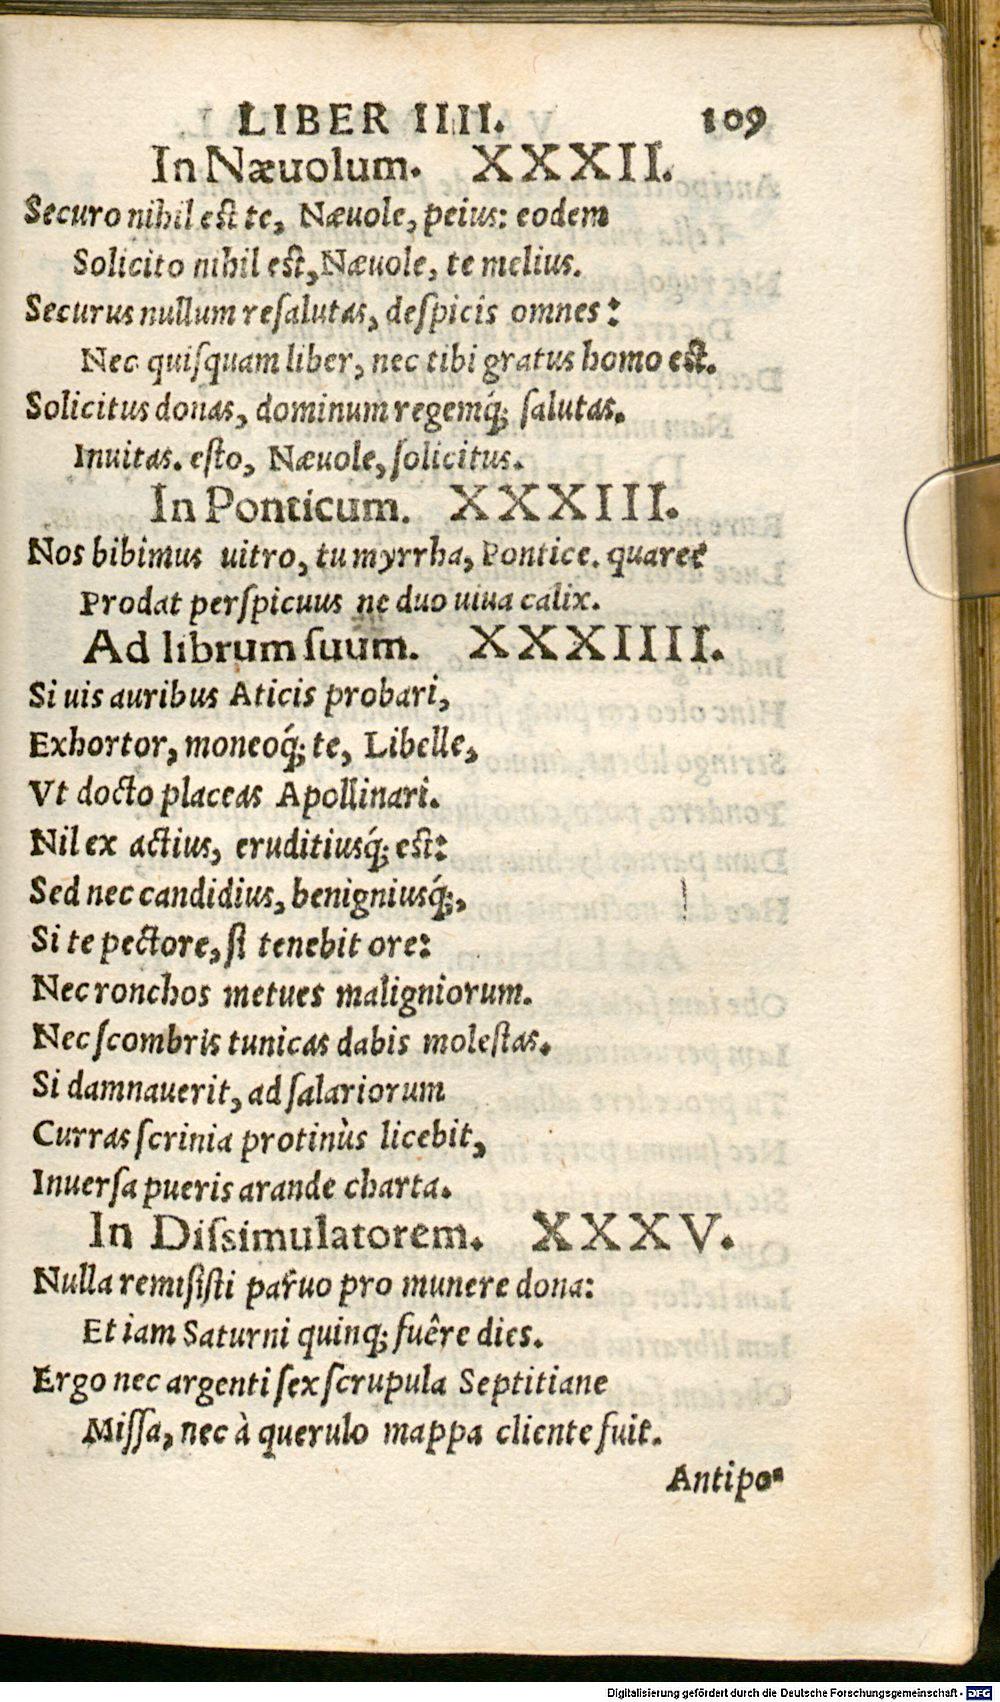 LIBER IIII. 109
In Næuolum. XXXII.
Securo nihil est te, Næuole, peius: eodem
Solicito nihil est, Næuole, te melius.
Securus nullum reſalutas, deſpicis omnes:
Nec quiſquam liber, nec tibi gratus homo est.
Solicitus donas, dominum regemq́; ſalutas.
Inuitas. eſto, Næuole, ſolicitus.
In Ponticum. XXXIII.
Nos bibimus uitro, tu myrrha, Pontice. quare?
Prodat perſpicuus ne duo uiua calix.
Ad librum ſuum. XXXIIII.
Si uis auribus Aticis probari,
Exhortor, moneoq́; te, Libelle,
Vt docto placeas Apollinari.
Nil ex actius, eruditiusq́; est:
Sed nec candidius, benigniusq́;,
Si te pectore, ſi tenebit ore:
Nec ronchos metues maligniorum.
Nec ſcombris tunicas dabis moleſtas.
Si damnauerit, ad ſalariorum
Curras ſcrinia protinùs licebit,
Inuerſa pueris arande charta.
In Diſsimulatorem. XXXV.
Nulla remiſiſti paruo pro munere dona:
Et iam Saturni quinq; fuêre dies.
Ergo nec argenti ſex ſcrupula Septitiane
Miſſa, nec à querulo mappa cliente fuit.
Antipo-
Digitalisierung gefördert durch die Deutsche Forschungsgemeinschaft - DFG